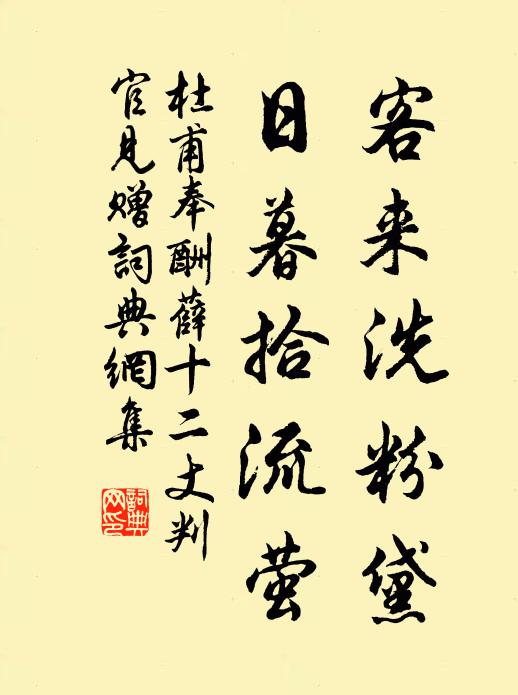 客来洗粉黛
日暮拾流萤
杜甫奉酬薛十二丈判
官見贈詞典網集
詞典网印